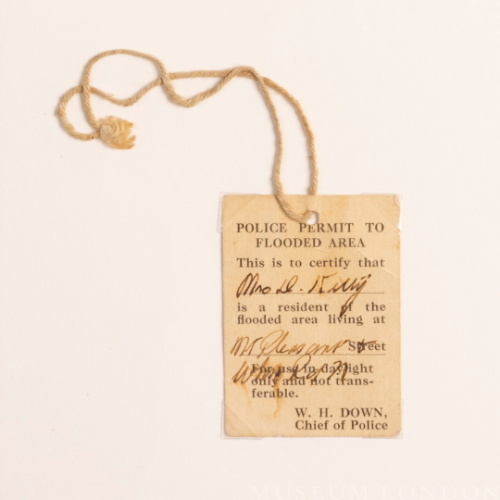 POLICE PERMIT TO
FLOODED AREA
This is to certify that
Mrs D. Kelly
is a resident of the
flooded area living at
Mt Pleasant Street
For use in daylight
only and not trans-
ferable.
W. H. DOWN,
Chief of Police
MUSEUM LONDON